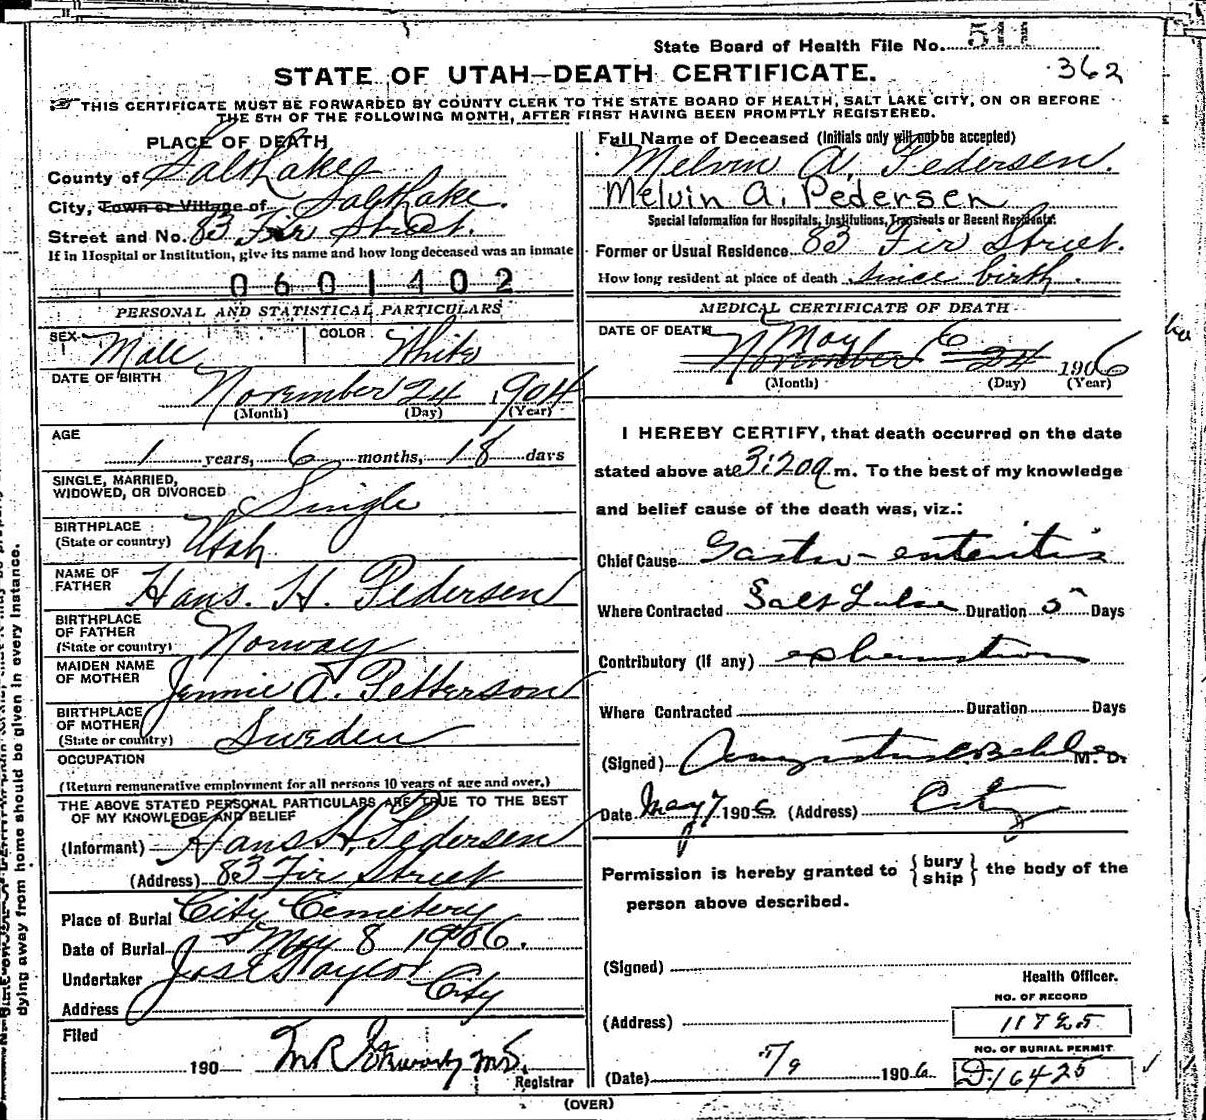 State Board of Health File No. 511
362
STATE OF UTAH—DEATH CERTIFICATE.
THIS CERTIFICATE MUST BE FORWARDED BY COUNTY CLERK TO THE STATE BOARD OF HEALTH, SALT LAKE CITY, ON OR BEFORE
THE 5TH OF THE FOLLOWING MONTH, AFTER FIRST HAVING BEEN PROMPTLY REGISTERED.
PLACE OF DEATH
County of Salt Lake
City, Town or Village of Salt Lake.
Street and No. 83 Fir Street.
If in Hospital or Institution, give its name and how long deceased was an inmate
0601402
PERSONAL AND STATISTICAL PARTICULARS
SEX Male COLOR White
DATE OF BIRTH
November 24 1904
(Month) (Day) (Year)
AGE
1 years, 6 months, 18 days
SINGLE, MARRIED,
WIDOWED, OR DIVORCED Single
BIRTHPLACE
(State or country) Utah
NAME OF
FATHER Hans. H. Pedersen
BIRTHPLACE
OF FATHER
(State or country) Norway
MAIDEN NAME
OF MOTHER Jennie A. Petterson
BIRTHPLACE
OF MOTHER
(State or country) Sweden
OCCUPATION
(Return remunerative employment for all persons 10 years of age and over.)
THE ABOVE STATED PERSONAL PARTICULARS ARE TRUE TO THE BEST
OF MY KNOWLEDGE AND BELIEF
(Informant) Hans H. Pedersen
(Address) 83 Fir Street
Place of Burial City Cemetery
Date of Burial May 8 1906.
Undertaker Jos E Taylor
Address City
Filed
190
Registrar
Full Name of Deceased (Initials only will not be accepted)
Melvin A. Pedersen.
Melvin A. Pedersen
Special Information for Hospitals, Institutions, Transients or Recent Residents.
Former or Usual Residence 83 Fir Street.
How long resident at place of death since birth.
MEDICAL CERTIFICATE OF DEATH
DATE OF DEATH May 6
November 24 1906
(Month) (Day) (Year)
I HEREBY CERTIFY, that death occurred on the date
stated above at 3:20 a m. To the best of my knowledge
and belief cause of the death was, viz.:
Chief Cause Gastro-enteritis
Where Contracted Salt Lake Duration 5 Days
Contributory (if any) exhaustion
Where Contracted Duration Days
(Signed) M. D.
Date May 7 1906 (Address) City
Permission is hereby granted to {bury ship} the body of the
person above described.
(Signed)
Health Officer.
NO. OF RECORD
(Address) 11725
NO. OF BURIAL PERMIT
(Date) 5/9 1906 D16425
(OVER)
dying away from home should be given in every instance.